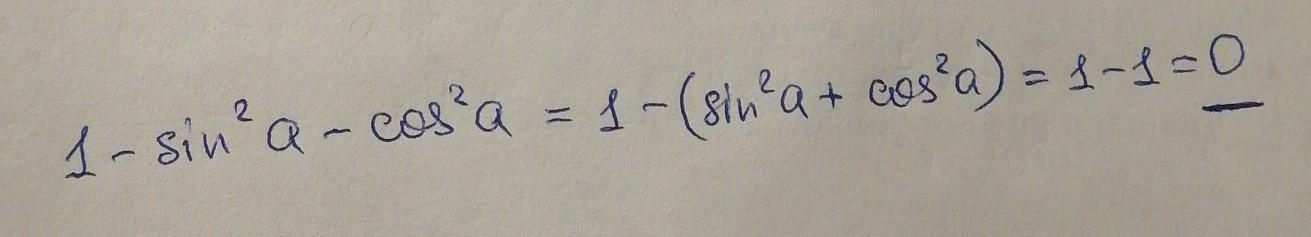 1 - sin²a - cos²a = 1 - (sin²a + cos²a) = 1 - 1 = 0